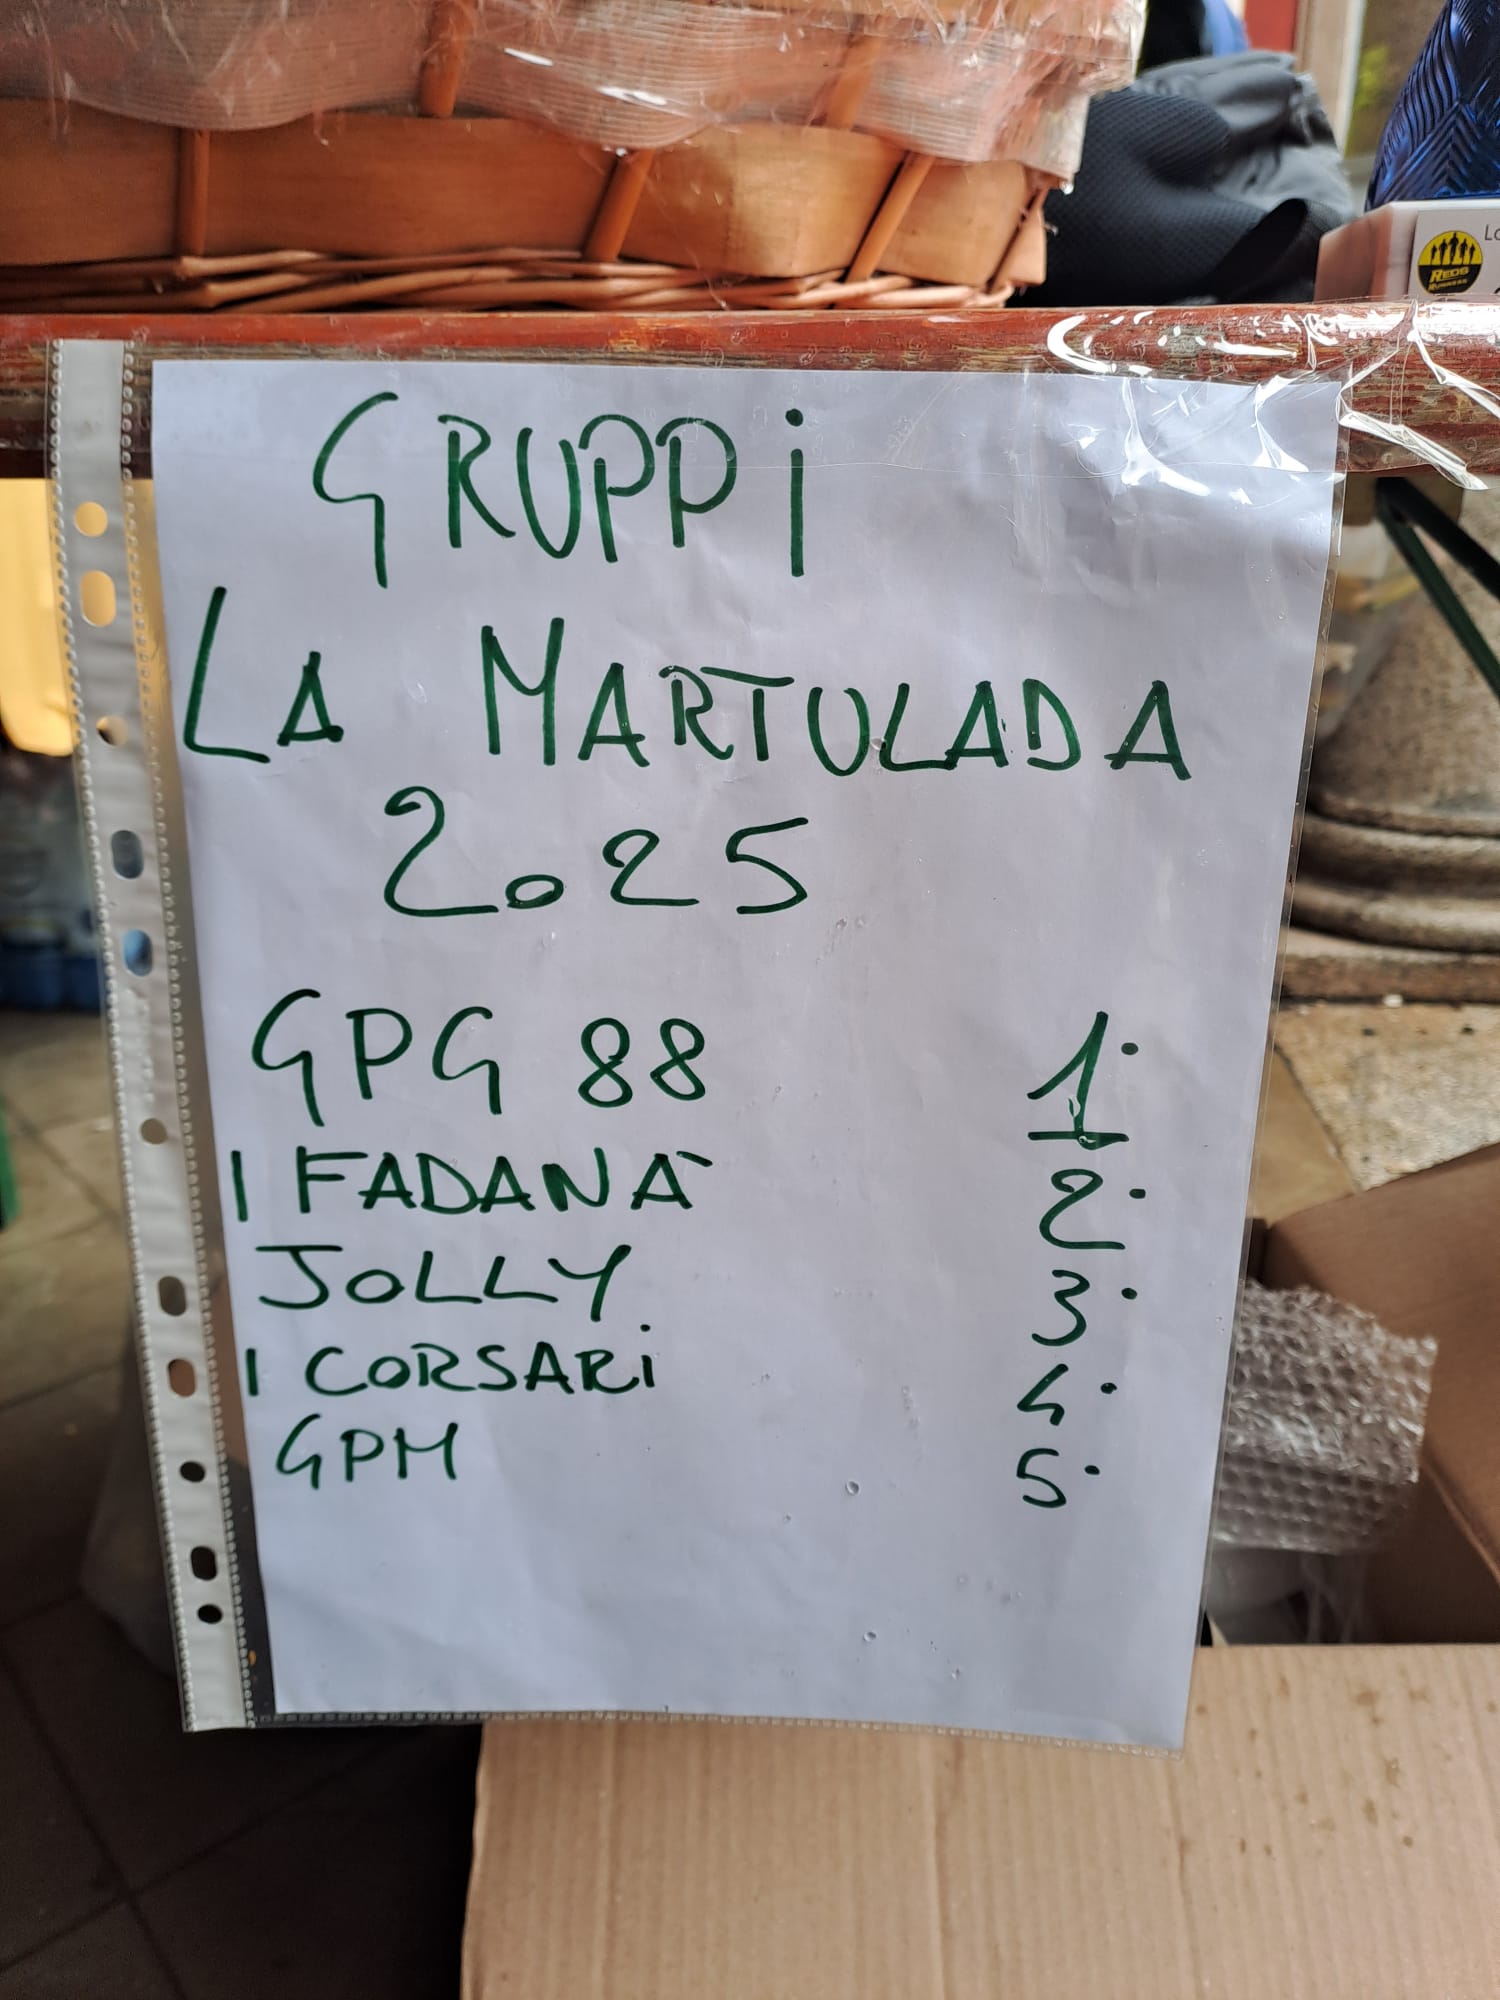 Lo
REDS
RUNNERS
GRUPPi
LA MARTULADA
2025
GPG 88 1°
I FADANÀ 2°
JOLLY 3°
I CORSARi 4°
GPM 5°